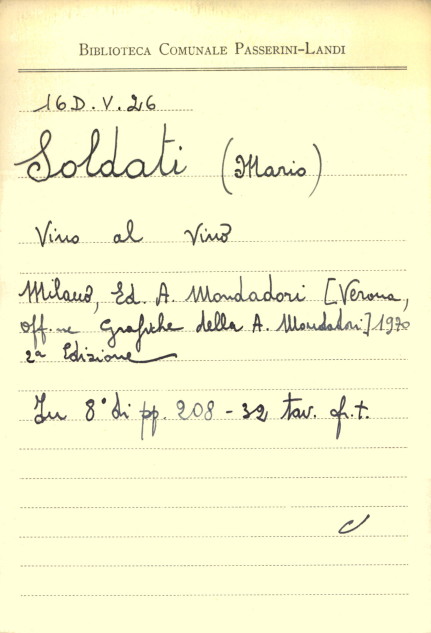 BIBLIOTECA COMUNALE PASSERINI-LANDI
16D.V.26
Soldati (Mario)
Vino al Vino
Milano, Ed. A. Mondadori [Verona,
Off.ne Grafiche della A. Mondadori] 1970
2ª Edizione
In 8° di pp. 208 - 32 tav. f.t.